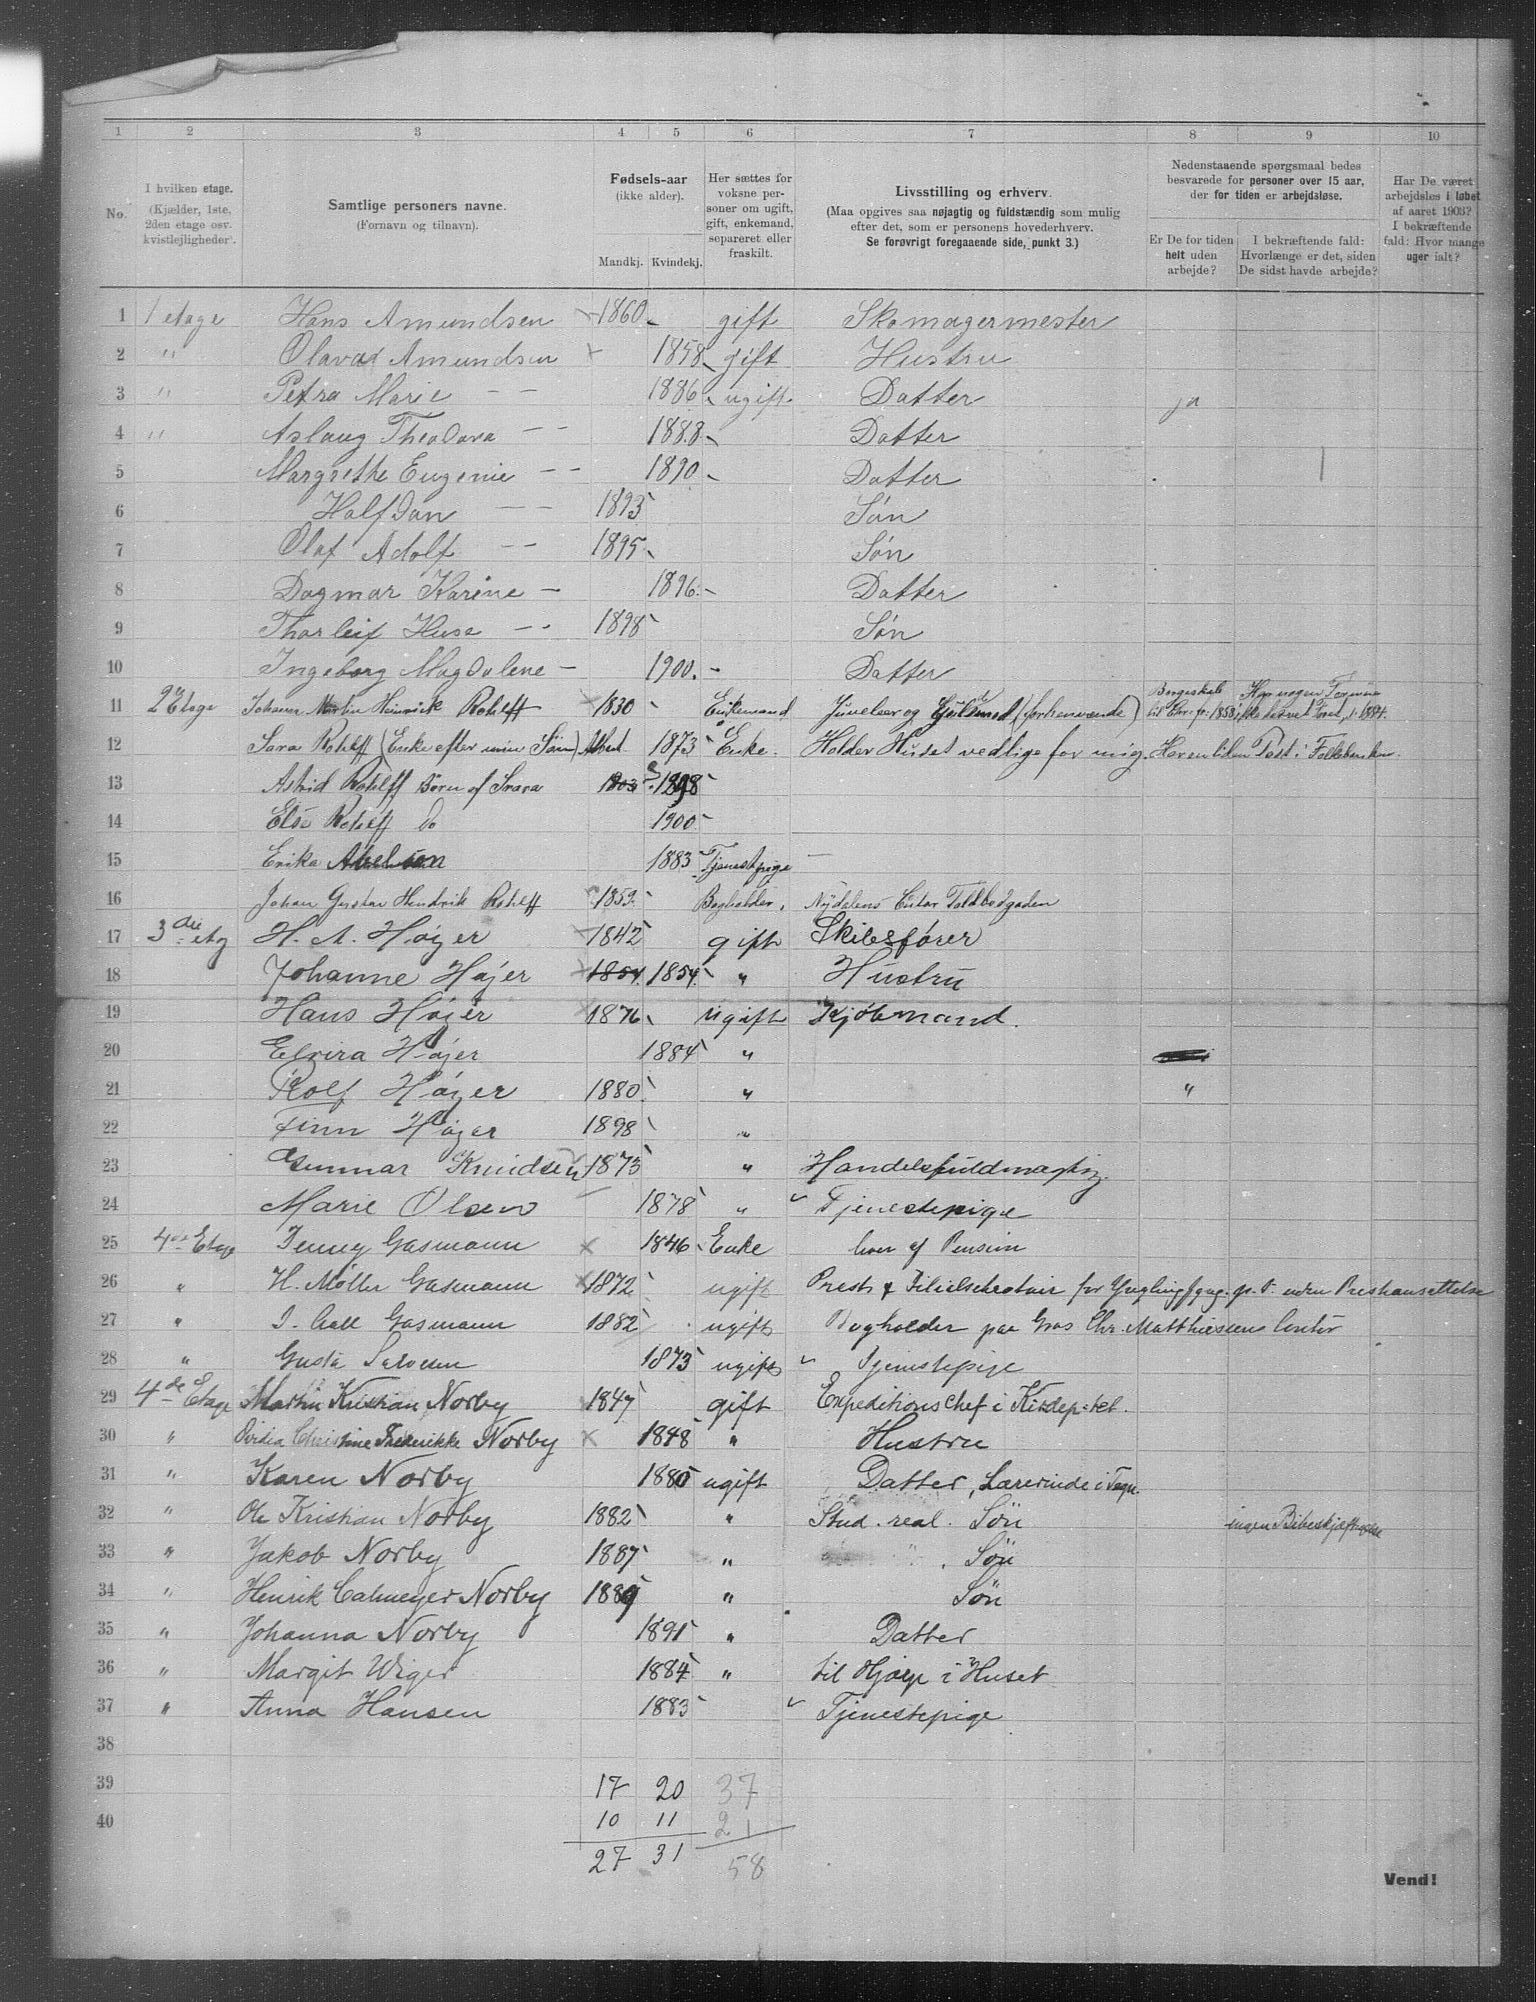 1 2 3 4 5 6 7 8 9 10
No.
I hvilken etage.
(Kjælder, 1ste,
2den etage osv.
kvistlejligheder).
Samtlige personers navne.
(Fornavn og tilnavn).
Fødsels-aar
(ikke alder).
Mandkj. Kvindekj.
Her sættes for
voksne per-
soner om ugift,
gift, enkemand,
separeret eller
fraskilt.
Livsstilling og erhverv.
(Maa opgives saa nøjagtig og fuldstændig som mulig
efter det, som er personens hovederhverv.
Se forøvrigt foregaaende side, punkt 3.)
Nedenstaaende spørgsmaal bedes
besvarede for personer over 15 aar,
der for tiden er arbejdsløse.
Er De for tiden
helt uden
arbejde?
I bekræftende fald:
Hvorlænge er det, siden
De sidst havde arbejde?
Har De været
arbejdsløs i løbet
af aaret 1903?
I bekræftende
fald: Hvor mange
uger ialt?
1 1 etage Hans Amundsen 1860 gift Skomagermester
2 " Olava Amundsen 1858 gift Hustru
3 " Petra Marie — — 1886 ugift Datter ja
4 " Aslaug Theodora — — 1888 Datter
5 Margrethe Eugenie — — 1890 Datter
6 Halfdan — — 1893 Søn
7 Olaf Adolf — — 1895 Søn
8 Dagmar Karine — 1896 Datter
9 Thorleif Huse — 1898 Søn
10 Ingeborg Magdalene — 1900 Datter
11 2 Etage Johann Martin Heinrick Rohlff 1830 Enkemand Juveleer og Guldsmed (forhenværende)
12 Sara Rohlff (Enke efter min Søn) 1873 Enke. Holder Huset vedlige for mig.
13 Astrid Rohlff Børn af Sara 1898
14 Else Rohlff Do 1900
15 Erika Abelson 1883 Tjenestpige —
16 Johan Gustav Hendrik Rohlff 1859 Bogholder, Nydalens Contor Toldbodgaden
17 3die etag H. A. Høyer 1842 gift Skibsfører
18 Johanne Høyer 1854 1854 " Hustru
19 Hans Høyer 1876 ugift Kjøbmand.
20 Elvira Høyer 1884 "
21 Rolf Høyer 1880 " "
22 Finn Høyer 1898 "
23 Gunnar Knudsen 1875 " Handelsfuldmægtig.
24 Marie Olsen 1878 " Tjenestepige
25 4de Etage Jenny Gasmann 1846 Enke lever af Pension
26 " H. Møller Gasmann 1872 ugift
27 " J. Aall Gasmann 1882 ugift Bogholder paa Gros Chr. Matthiesen Contor
28 " Gusta Salvesen 1873 ugift Tjenestepige
29 4de Etage Martin Kristian Norby 1847 gift Expeditionschef i Kirdep-tet.
30 " Christine Frederikke Norby 1848 " Hustru
31 " Karen Norby 1880 ugift Datter, Lærerinde i
32 " Ole Kristian Norby 1882 " Stud. real. Søn ingen Bibeskjæftigelse
33 " Jakob Norby 1887 " " Søn
34 " Henrik Calmeyer Norby 1889 " Søn
35 " Johanna Norby 1891 " Datter
36 " Margit Wiger 1884 " til Hjælp i Huset
37 " Anna Hansen 1883 Tjenestepige
38
39 17 20 37
40 10 11 21
27 31 58
Vend!